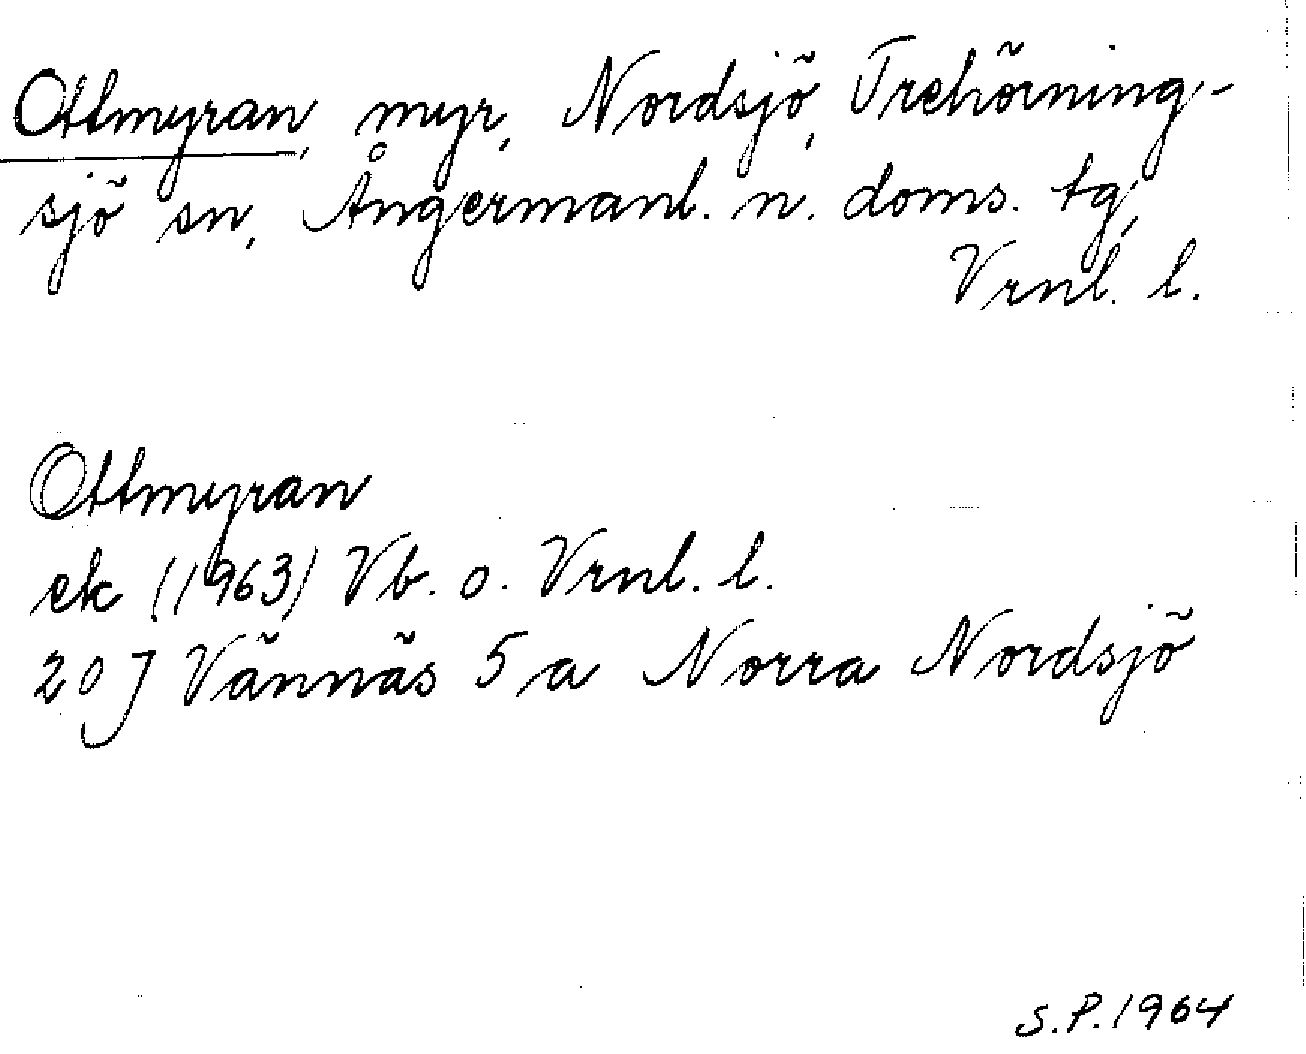 Ottmyran, myr, Nordsjö, Trehörning-
sjö sn, Ångermanl. n. doms. tg,
Vrnl. l.
Ottmyran
ek (1963) Vb. o. Vrnl. l.
20 J Vännäs 5 a Norra Nordsjö
S.P. 1964